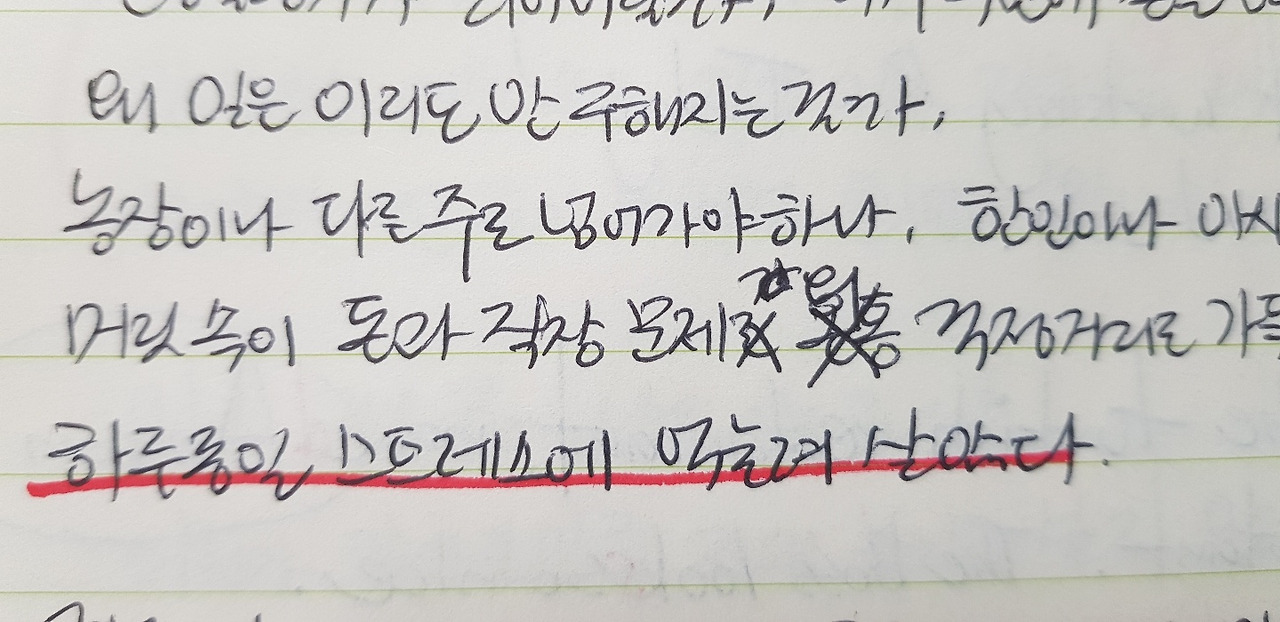 왜 일은 이리도 안 구해지는걸까,
농장이나 다른 주로 넘어가야하나, 한인이나 아시
머릿속이 돈과 직장 문제 걱정거리로 가득
하루종일 스트레스에 억눌려 살았다.